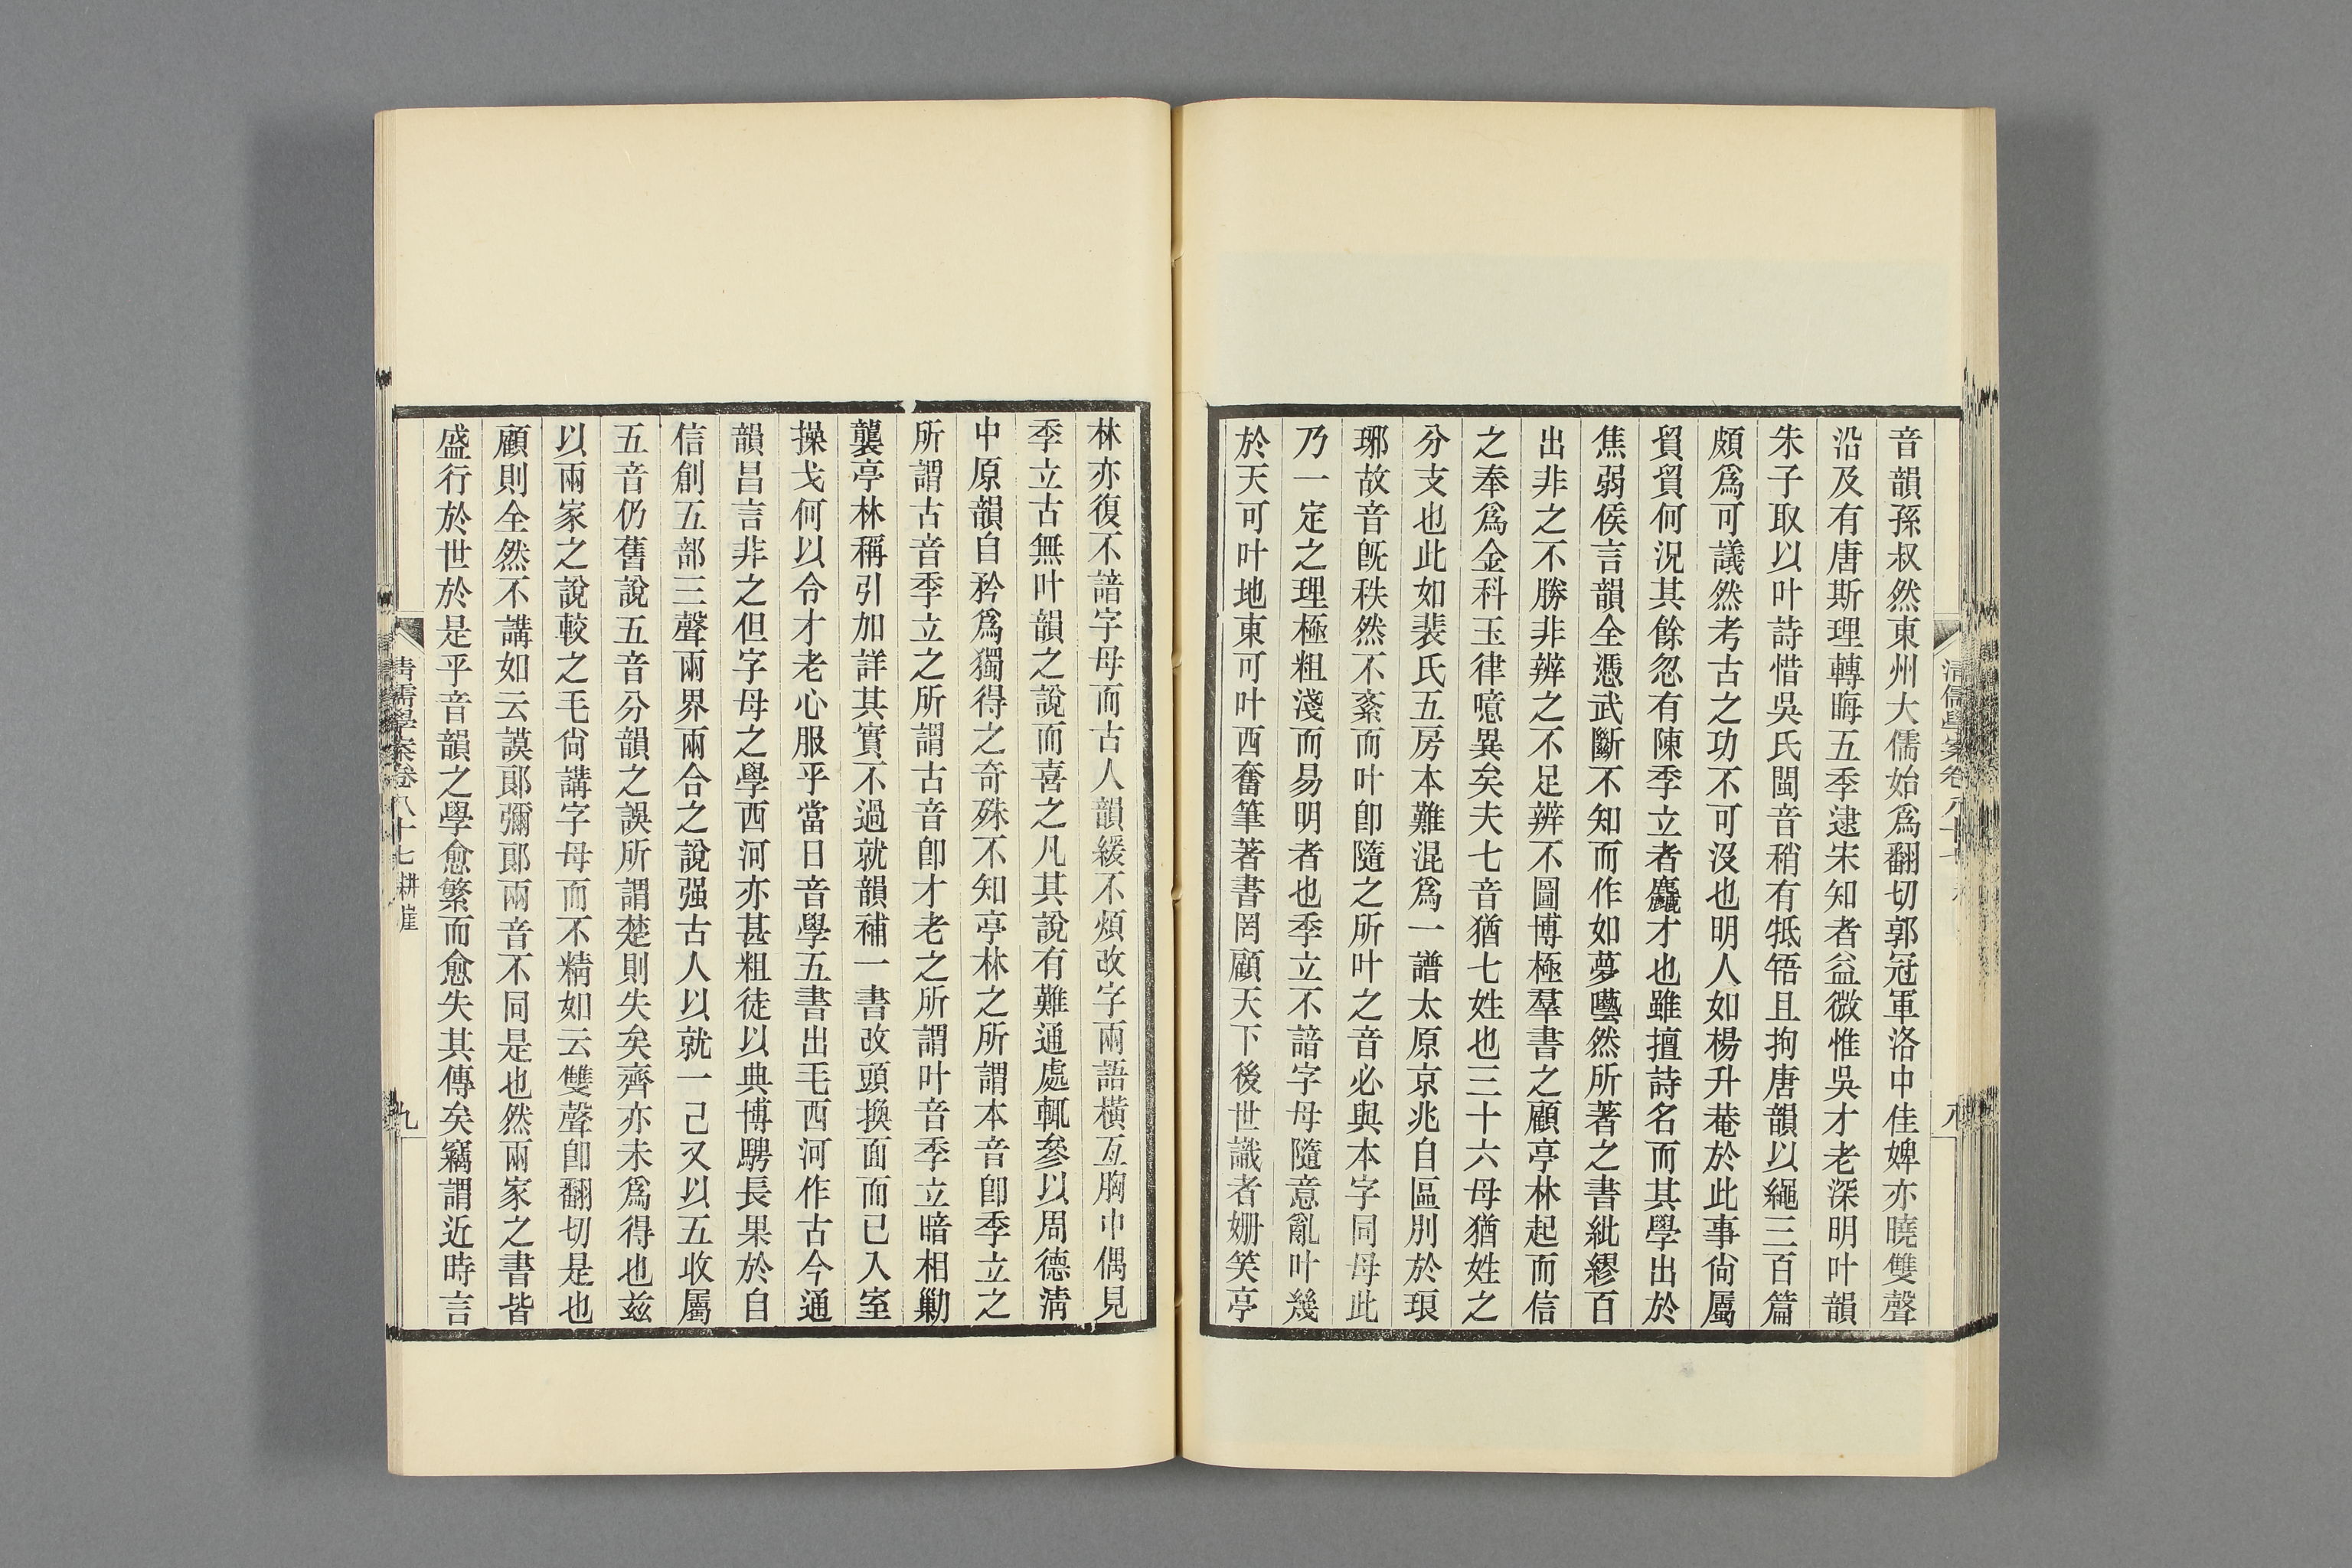 音韻孫叔然東州大儒始爲翻切郭冠軍洛中佳婢亦曉雙聲
沿及有唐斯理轉晦五季逮宋知者益微惟吳才老深明叶韻
朱子取以叶詩惜吳氏閩音稍有牴牾且拘唐韻以繩三百篇
頗爲可議然考古之功不可沒也明人如楊升菴於此事尙屬
貿貿何況其餘忽有陳季立者麤才也雖擅詩名而其學出於
焦弱侯言韻全憑武斷不知而作如夢囈然所著之書紕繆百
出非之不勝非辨之不足辨不圖博極羣書之顧亭林起而信
之奉爲金科玉律噫異矣夫七音猶七姓也三十六母猶姓之
分支也此如裴氏五房本難混爲一譜太原京兆自區別於琅
琊故音旣秩然不紊而叶卽隨之所叶之音必與本字同母此
乃一定之理極粗淺而易明者也季立不諳字母隨意亂叶幾
於天可叶地東可叶西奮筆著書罔顧天下後世識者姍笑亭
清儒學案卷八十七
八
林亦復不諳字母而古人韻緩不煩改字兩語橫亙胸中偶見
季立古無叶韻之說而喜之凡其說有難通處輒參以周德清
中原韻自矜爲獨得之奇殊不知亭林之所謂本音卽季立之
所謂古音季立之所謂古音卽才老之所謂叶音季立暗相勦
襲亭林稱引加詳其實不過就韻補一書改頭換面而已入室
操戈何以令才老心服乎當日音學五書出毛西河作古今通
韻昌言非之但字母之學西河亦甚粗徒以典博騁長果於自
信創五部三聲兩界兩合之說强古人以就一己又以五收屬
五音仍舊說五音分韻之誤所謂楚則失矣齊亦未爲得也茲
以兩家之說較之毛尙講字母而不精如云雙聲卽翻切是也
顧則全然不講如云謨郞彌郞兩音不同是也然兩家之書皆
盛行於世於是乎音韻之學愈繁而愈失其傳矣竊謂近時言
清儒學案卷八十七 耕崖
九